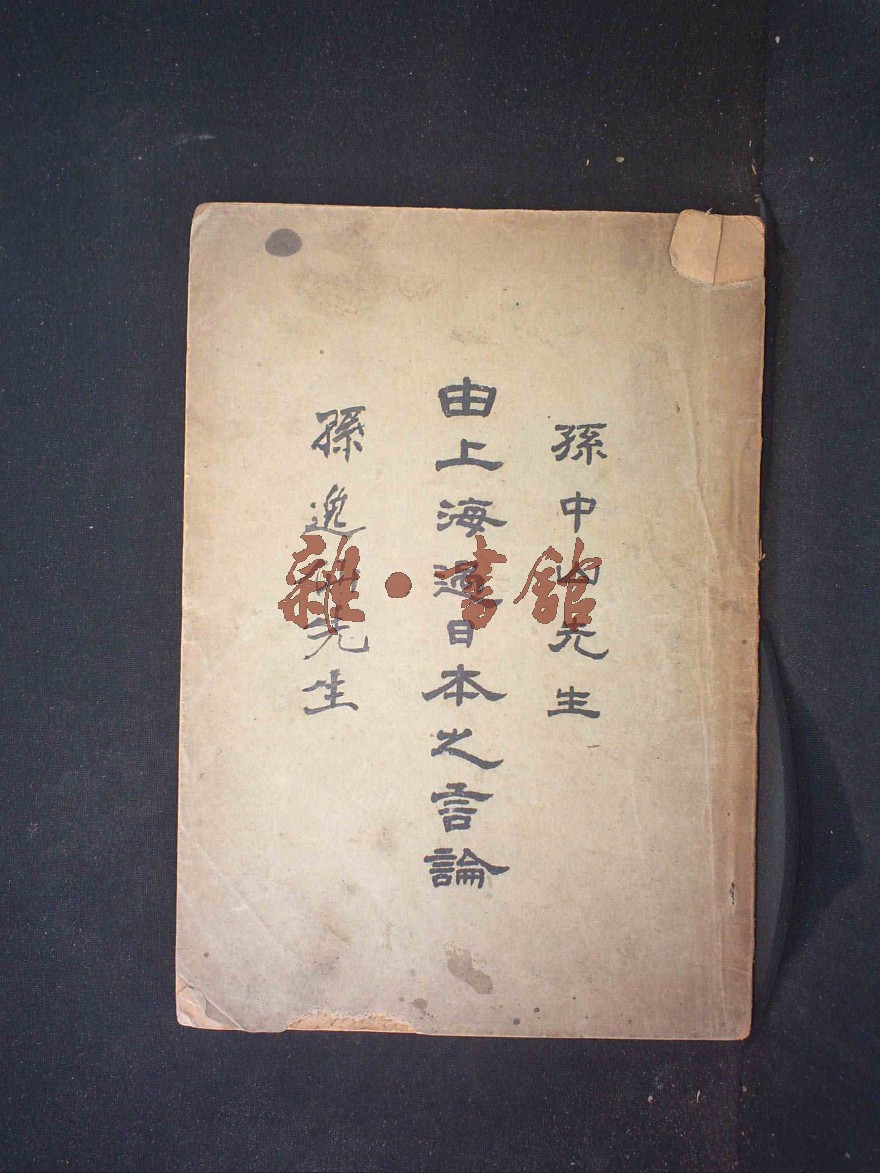 孫中山先生
由上海過日本之言論
孫逸仙先生
雜·書館